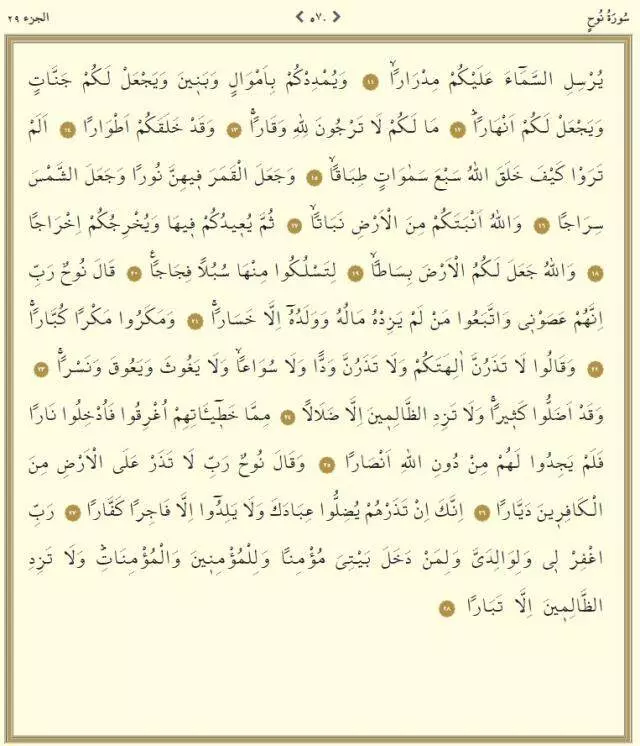 سُورَةُ نُوحٍ ٥٧٠ الجزء ٢٩
يُرْسِلِ السَّمَٓاءَ عَلَيْكُمْ مِدْرَارًاۙ ١١ وَيُمْدِدْكُمْ بِاَمْوَالٍ وَبَن۪ينَ وَيَجْعَلْ لَكُمْ جَنَّاتٍ
وَيَجْعَلْ لَكُمْ اَنْهَارًاۜ ١٢ مَا لَكُمْ لَا تَرْجُونَ لِلّٰهِ وَقَارًاۚ ١٣ وَقَدْ خَلَقَكُمْ اَطْوَارًا ١٤ اَلَمْ
تَرَوْا كَيْفَ خَلَقَ اللّٰهُ سَبْعَ سَمٰوَاتٍ طِبَاقًاۙ ١٥ وَجَعَلَ الْقَمَرَ ف۪يهِنَّ نُورًا وَجَعَلَ الشَّمْسَ
سِرَاجًا ١٦ وَاللّٰهُ اَنْبَتَكُمْ مِنَ الْاَرْضِ نَبَاتًاۙ ١٧ ثُمَّ يُع۪يدُكُمْ ف۪يهَا وَيُخْرِجُكُمْ اِخْرَاجًا
١٨ وَاللّٰهُ جَعَلَ لَكُمُ الْاَرْضَ بِسَاطًاۙ ١٩ لِتَسْلُكُوا مِنْهَا سُبُلًا فِجَاجًا۟ ٢٠ قَالَ نُوحٌ رَبِّ
اِنَّهُمْ عَصَوْن۪ي وَاتَّبَعُوا مَنْ لَمْ يَزِدْهُ مَالُهُ وَوَلَدُهُٓ اِلَّا خَسَارًاۚ ٢١ وَمَكَرُوا مَكْرًا كُبَّارًاۚ
٢٢ وَقَالُوا لَا تَذَرُنَّ اٰلِهَتَكُمْ وَلَا تَذَرُنَّ وَدًّا وَلَا سُوَاعًاۙ وَلَا يَغُوثَ وَيَعُوقَ وَنَسْرًاۚ ٢٣
وَقَدْ اَضَلُّوا كَث۪يرًاۚ وَلَا تَزِدِ الظَّالِم۪ينَ اِلَّا ضَلَالًا ٢٤ مِمَّا خَط۪ٓيـَٔاتِهِمْ اُغْرِقُوا فَاُدْخِلُوا نَارًا
فَلَمْ يَجِدُوا لَهُمْ مِنْ دُونِ اللّٰهِ اَنْصَارًا ٢٥ وَقَالَ نُوحٌ رَبِّ لَا تَذَرْ عَلَى الْاَرْضِ مِنَ
الْكَافِر۪ينَ دَيَّارًا ٢٦ اِنَّكَ اِنْ تَذَرْهُمْ يُضِلُّوا عِبَادَكَ وَلَا يَلِدُٓوا اِلَّا فَاجِرًا كَفَّارًا ٢٧ رَبِّ
اغْفِرْ ل۪ي وَلِوَالِدَيَّ وَلِمَنْ دَخَلَ بَيْتِيَ مُؤْمِنًا وَلِلْمُؤْمِن۪ينَ وَالْمُؤْمِنَاتِۜ وَلَا تَزِدِ
الظَّالِم۪ينَ اِلَّا تَبَارًا ٢٨